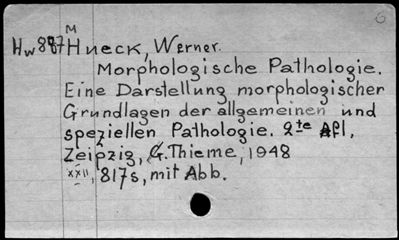 M
Hw887 Hueck, Werner.
Morphologische Pathologie.
Eine Darstellung morphologischer
Grundlagen der allgemeinen und
speziellen Pathologie. 2te Afl,
Zeipzig, G. Thieme, 1948
XXII, 817s, mit Abb.